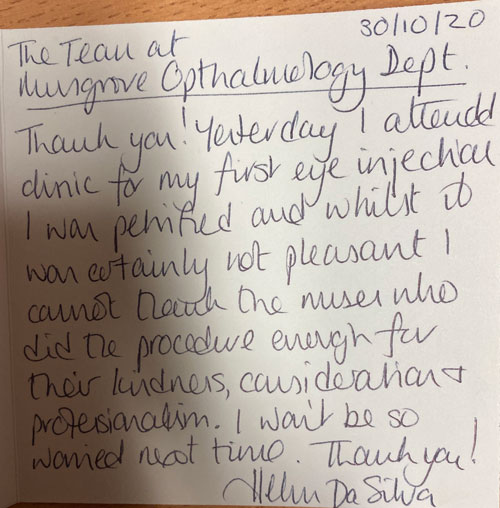 30/10/20
The Team at
Musgrove Opthalmology Dept.
Thank you! Yesterday I attendd
clinic for my first eye injection
I was petrified and whilst it
was certainly not pleasant I
cannot thank the nurses who
did the procedure enough for
their kindness, consideration &
professionalism. I won't be so
worried next time. Thank you!
Helen Da Silva